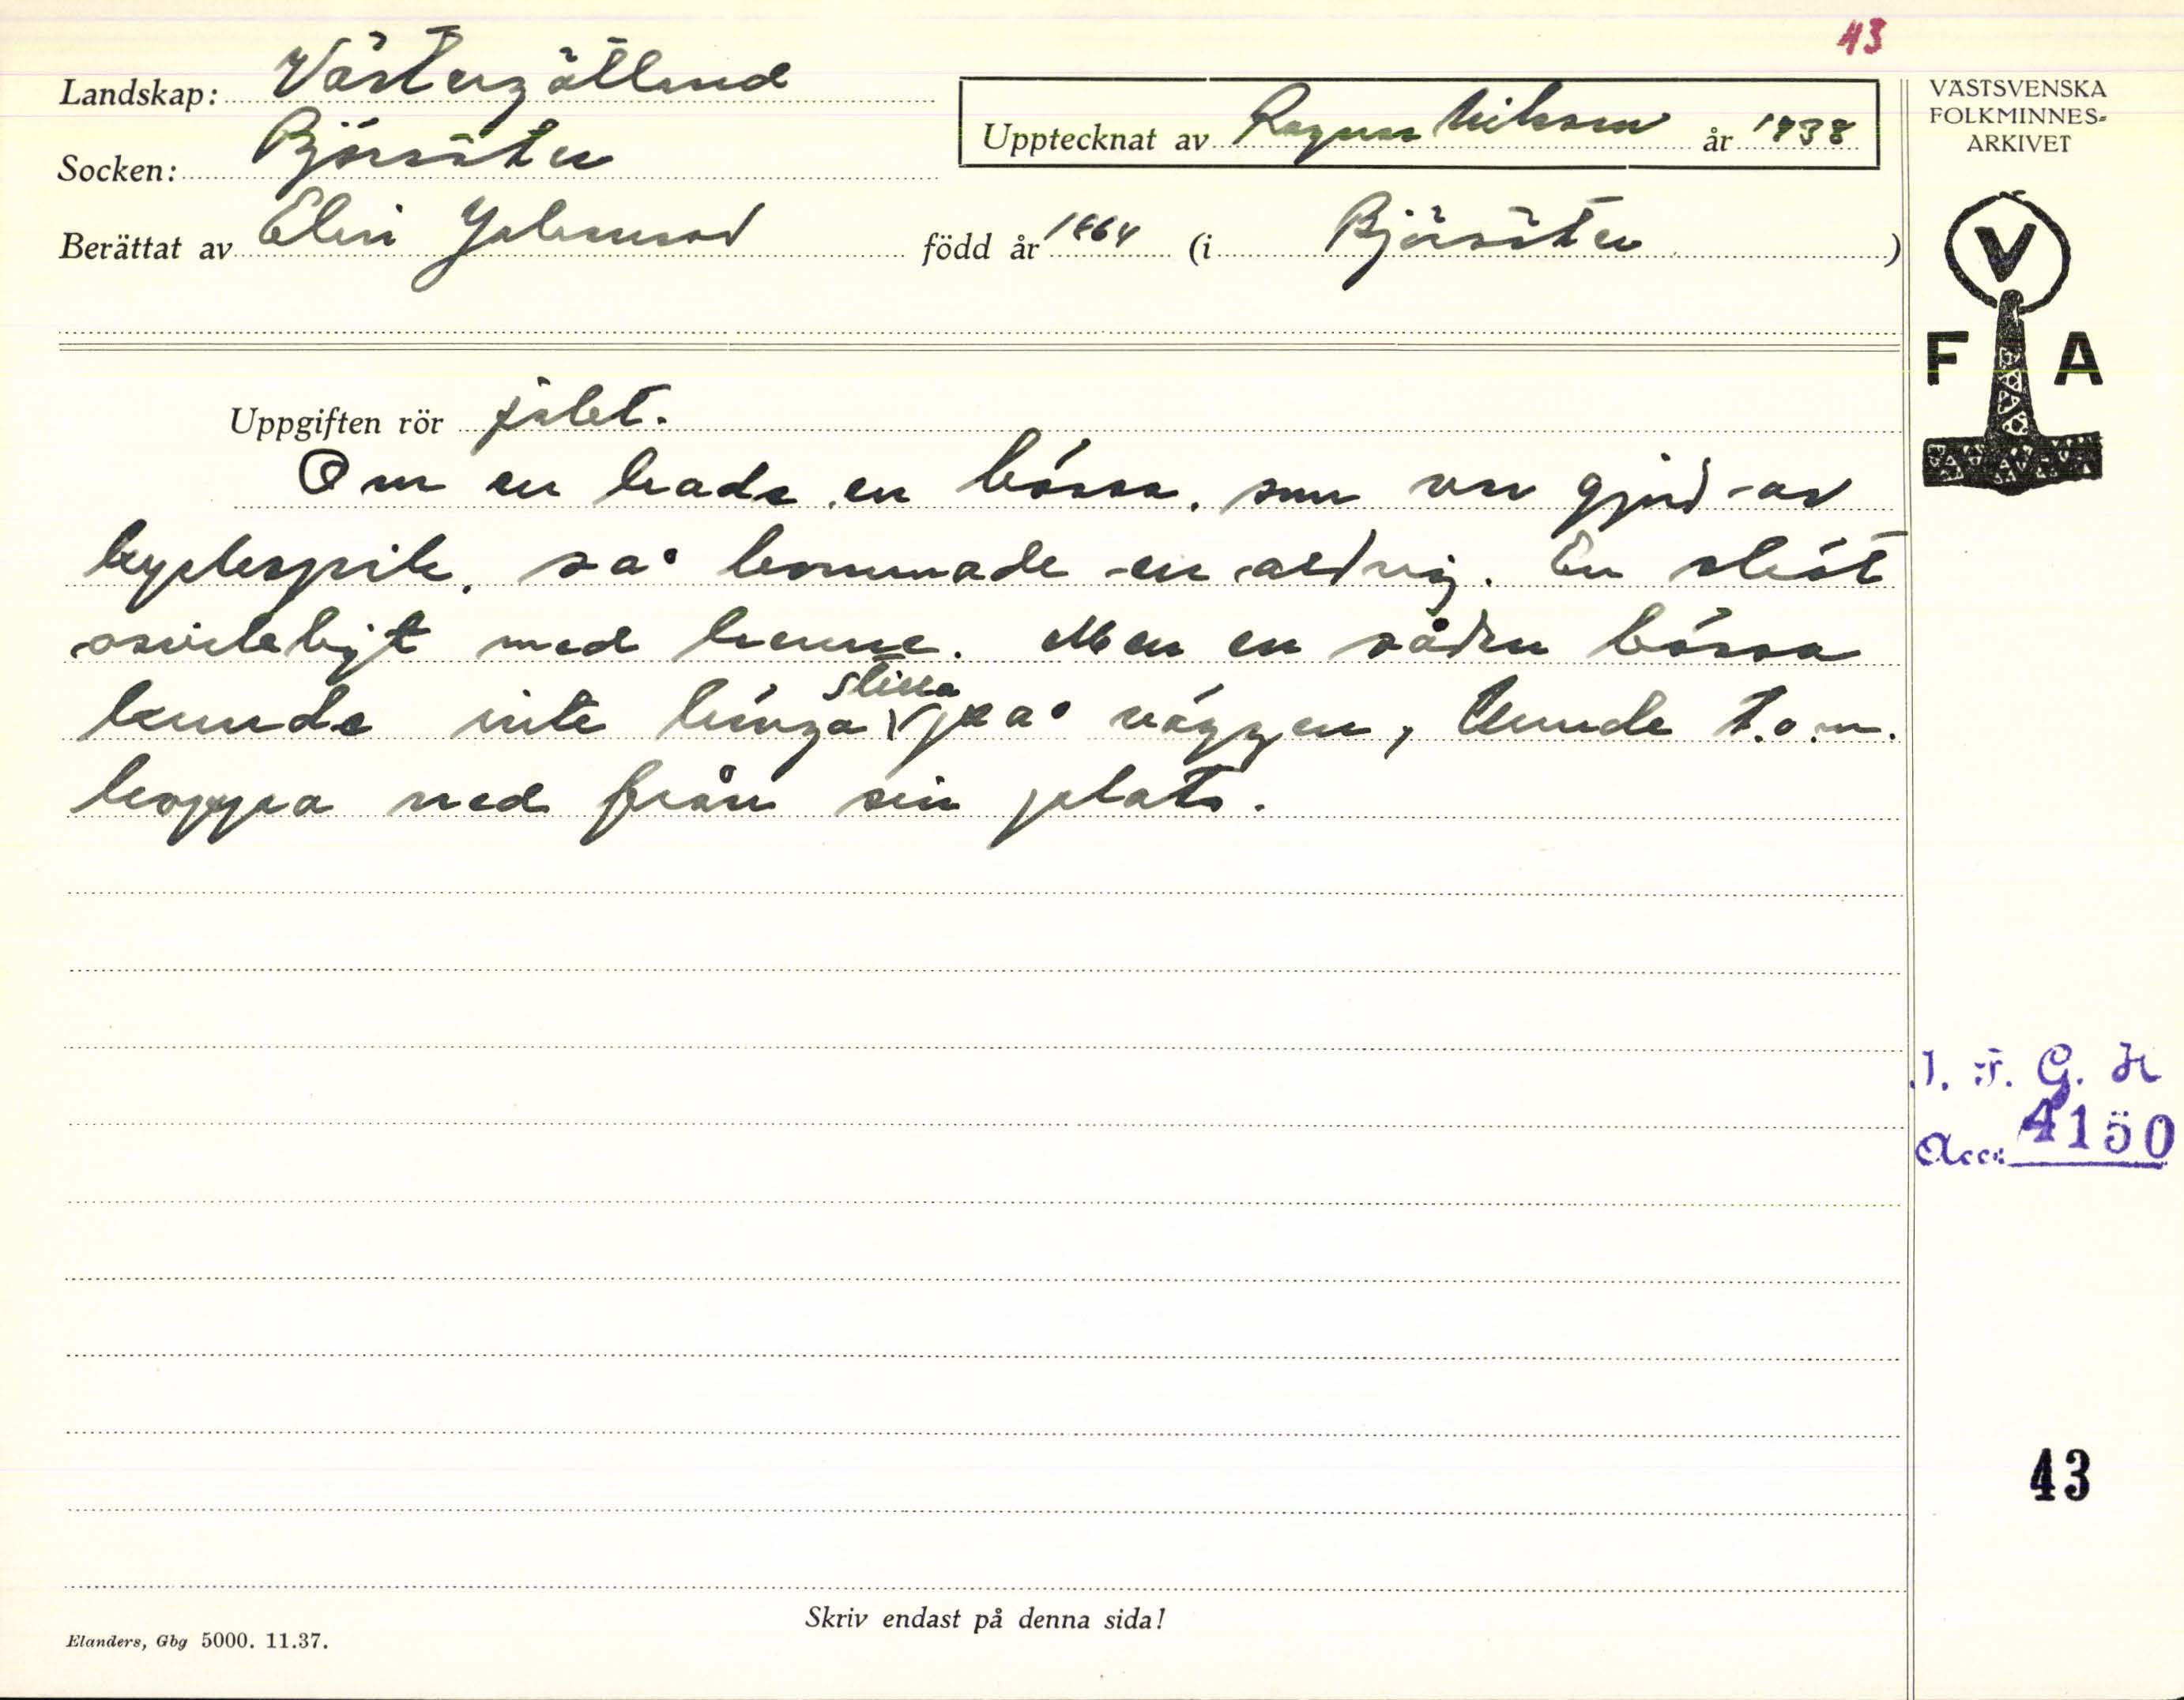 43
Landskap: Västergötland
Upptecknat av Ragnar Nilsson år 1938
VÄSTSVENSKA
FOLKMINNES-
ARKIVET
Socken: Björsäter
Berättat av Elin född år 1864 (i Björsäter)
V
F A
Uppgiften rör jakt.
Om en hade en bössa, som var gjord av
kyrkespik, så bommade en aldrig. En sköt
osvikligt med henne. Men en sådan bössa
kunde inte hänga stilla på väggen, kunde t.o.m.
hoppa ned från sin plats.
I. F. G. H
Acc: 4150
43
Skriv endast på denna sida!
Elanders, Gbg 5000. 11.37.